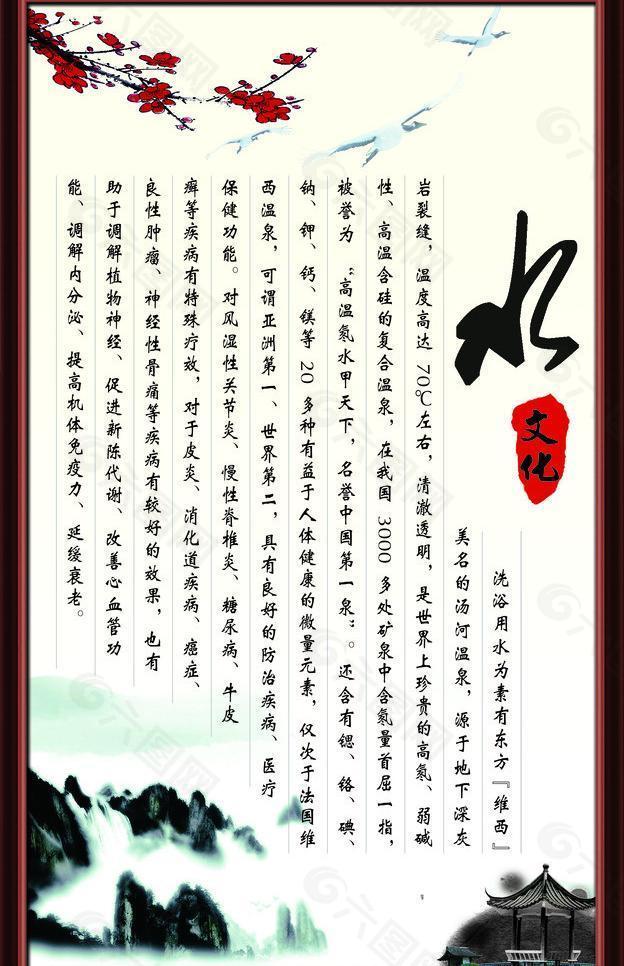 水
文化
洗浴用水为素有东方『维西』
美名的汤河温泉，源于地下深灰
岩裂缝，温度高达 70℃左右，清澈透明，是世界上珍贵的高氡、弱碱
性、高温含硅的复合温泉，在我国 3000 多处矿泉中含氡量首屈一指，
被誉为“高温氡水甲天下，名誉中国第一泉”。还含有锶、铬、碘、
钠、钾、钙、镁等 20 多种有益于人体健康的微量元素，仅次于法国维
西温泉，可谓亚洲第一、世界第二，具有良好的防治疾病、医疗
保健功能。对风湿性关节炎、慢性脊椎炎、糖尿病、牛皮
癣等疾病有特殊疗效，对于皮炎、消化道疾病、癌症、
良性肿瘤、神经性骨痛等疾病有较好的效果，也有
助于调解植物神经、促进新陈代谢、改善心血管功
能、调解内分泌、提高机体免疫力、延缓衰老。